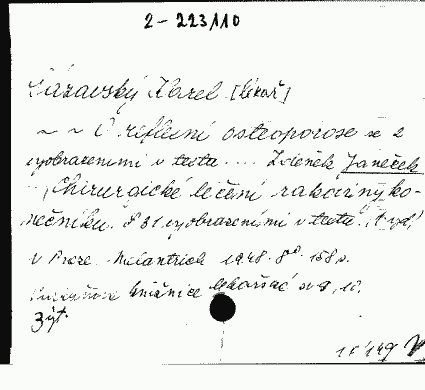 2-223/110
Sázavský Karel [lékař]
~ ~ O reflexní osteoporose se 2
vyobrazeními v textu .... Zdeněk Janeček
Chirurgické léčení rakoviny ko-
nečníku. S 31 vyobrazeními v textu. /1. vyd./
V Praze. Melantrich 1948. 8° 158 s.
knižnice lékařské sv. 9, 10.
3 yt.